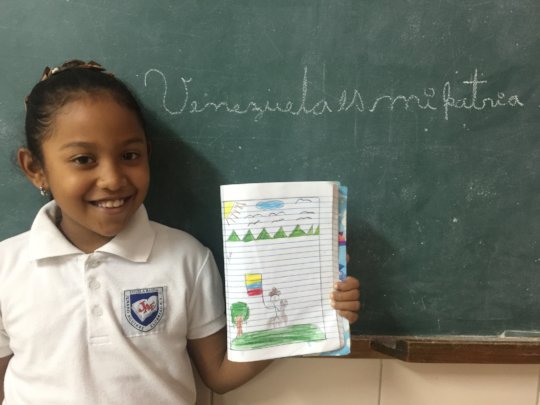 Venezuela es mi patria